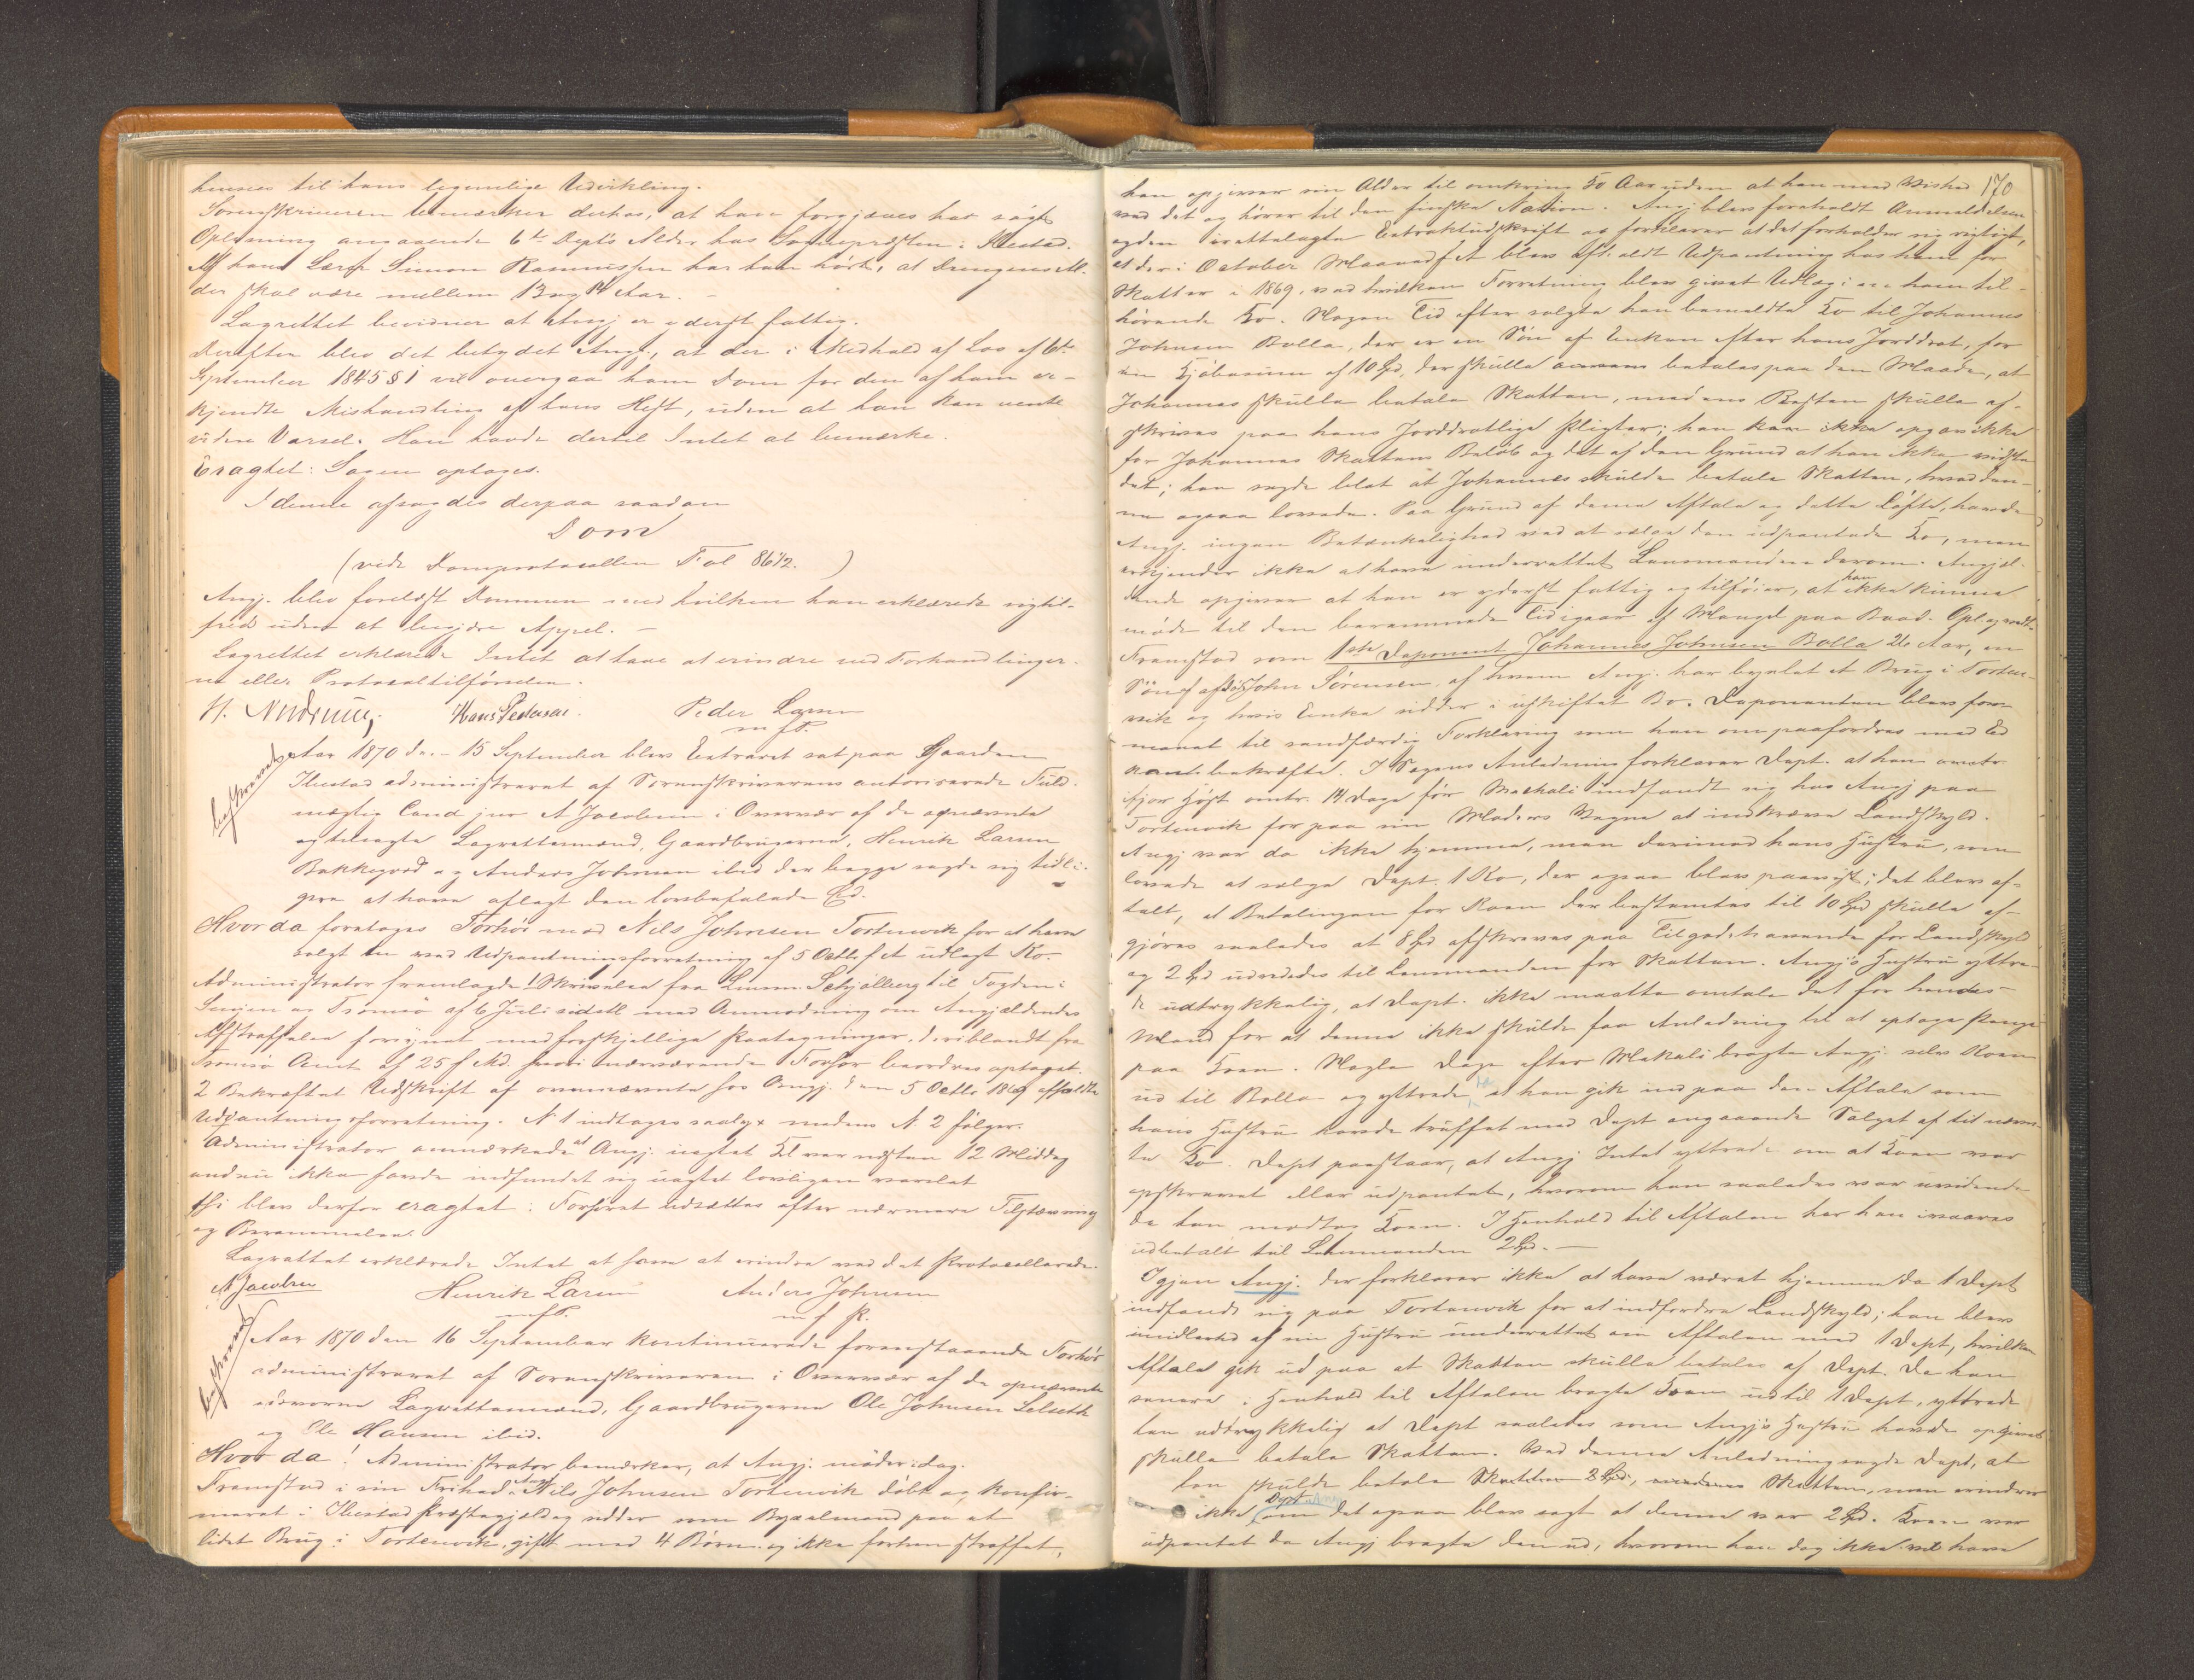 hensees til hans legemlige Udvikling.
Sorenskriveren bemærker derhos, at han forgjæves har søgt
Oplysning angaaende 6te Dept's Alder hos Sognepræsten i Ibestad.
Af hans Lærer Simon Rasmussen har han hørt, at Drengens Al-
der skal være mellem 13 og 14 Aar. -
Lagrettet bevidner at Angj er yderst fattig.
Derefter blev det betydet Angj., at der i Medhold af Lov af 6te
September 1845 § 1 vil overgaa ham Dom for den af ham er-
kjendte Mishandling af hans Hest, uden at han kan vente
videre Varsel. Han havde dertil Intet at bemærke.
Eragtet: Sagen optages.
I denne afsagdes derpaa saadan
Dom
(vide Domprotocollen Fol 86 1/2. )
Angj. blev forelæst Dommen med hvilken han erklærede sig til-
freds uden at begjære Appel. -
Lagrettet erklærede Intet at have at erindre ved Forhandlinger-
ne eller Protocoltilførselen.
H. Hans Pedersen. Peder Larsen
m f P.
Aar 1870 den 15 September blev Extraret sat paa Gaarden
Ibestad administreret af Sorenskriverens autoriserede Fuld-
mægtig Cand jur A Jacobsen i Overvær af de opnævnte
og tilsagte Lagrettesmænd, Gaardbrugerne, Henrik Larsen
Bakkegord og Anders Johnsen ibid der begge sagde sig tidli-
gere at have aflagt den lovbefalede Ed.
Hvor da foretoges Forhør mod Nils Johnsen Tortenvik for at have
solgt en ved Udpantningsforretning af 5 Octbr f A udlagt Ko.
Administrator fremlagde 1 Skrivelse fra Lensm. Schjølberg til Fogden i
Senjen og Tromsø af 6 Juli sidstl med Anmodning om Angjældendes
Afstraffelse forsynet med forskjellige Paategninger, deriblandt fra
Tromsø Amt af 25 f Md. hvori nærværende Forhør beordres optaget.
2 Bekræftet Udskrift af ovennævnte hos Angj. den 5 Octbr 1869 afholdte
Udpantningsforretning. N 1 indtages saalyd. medens N. 2 følger.
Administrator anmærkede at Angj. uagtet Kl var næsten 12 Middag
endnu ikke havde indfundet sig uagtet lovligen varslet
thi blev derfor eragtet: Forhøret udsættes efter nærmere Tilstævning
og Berammelse.
Lagrettet erklærede Intet at have at erindre ved det Protocollerede.
A Jacobsen Henrik Larsen Anders Johnsen
m f P. m f P.
Aar 1870 den 16 September kontinuerede foranstaaende Forhør
administreret af Sorenskriveren i Overvær af de opnævnte
edsvorne Lagrettesmænd, Gaardbrugerne Ole Johnsen Selseth
og Ole Hansen ibid.
Hvor da! Administrator bemærker, at Angj. møder idag.
Fremstod i sin Frihed Angj Nils Johnsen Tortenvik døbt og konfir-
meret i Ibestad Præstegjeld og sidder som Bygselmand paa et
lidet Brug i Tortenvik, gift med 4 Børn og ikke forhen straffet,
170
han opgiver sin Alder til omkring 50 Aar uden at han med Vished
ved det og hører til den finske Nation. Angj blev foreholdt Anmeldelsen
og den irettelagte Extraktudskrift og forklarer at det forholder sig rigtigt,
at der i October Maaned f A blev afholdt Udpantning hos ham for
Skatter i 1869, ved hvilken Forretning blev givet Udlæg i en ham til-
hørende Ko. Nogen Tid efter solgte han bemeldte Ko til Johannes
Johnsen Bolla, der er en Søn af Enken efter hans Jorddrot, for
en Kjøbesum af 10 Spd, der skulde betales paa den Maade, at
Johannes skulde betale Skatten, medens Resten skulde af-
skrives paa hans Jorddrotlige Pligter; han kan ikke opgav ikke
for Johannes Skattens Beløb og det af den Grund at han ikke vidste
det; han sagde blot at Johannes skulde betale Skatten, hvad den-
ne ogsaa lovede. Paa Grund af denne Aftale og dette Løfte, havde
Angj. ingen Betænkelighed ved at sælge den udpantede Ko, men
erkjender ikke at have underrettet Lensmanden derom. Angjæl-
dende opgiver at han er yderst fattig og tilføier, at han ikke kunne
møde til den berammede Tid igaar af Mangel paa Baad. Opl. og vedt.
Fremstod som 1ste Deponent Johannes Johnsen Bolla 26 Aar, en
Søn af afdøde John Sørensen, af hvem Angj. har bygslet et Brug i Torten-
vik og hvis Enke sidder i uskiftet Bo. Deponenten blev for-
manet til sandfærdig Forklaring som han om paafordres med Ed
kan bekræfte. I Sagens Anledning forklarer Dept. at han
ifjor Høst omtr. 14 Dage før Mikkeli indfandt sig hos Angj paa
Tortenvik for paa sin Moders Vegne at indkræve Landskyld.
Angj var da ikke hjemme, men derimod hans Hustru, som
lovede at sælge Dept. 1 Ko, der ogsaa blev paavist; det blev af-
talt, at Betalingen for Koen der bestemtes til 10 Spd skulde af-
gjøres saaledes at 8 Spd afskreves paa Tilgodehavende for Landskyld
og 2 Spd udrededes til Lensmanden for Skatten. Angjs Hustru yttre-
de udtrykkelig, at Dept. ikke maatte omtale det for hendes
Mand for at denne ikke skulde faa Anledning til at optage Penge
paa Koen. Nogle Dage efter Mikkeli bragte Angj. selv Koen
ud til Bolla og yttrede, at han gik ind paa den Aftale som
hans Hustru havde truffet med Dept angaaende Salget af til nævn-
te Ko. Dept paastaar, at Angj Intet yttrede om at Koen var
opskrevet eller udpantet, hvorom han saaledes var uvidende
da han modtog Koen. I Henhold til Aftalen har han ivaares
udbetalt til Lensmanden 2 Spd. -
Igjen Angj. der forklarer ikke at have været hjemme da 1 Dept
indfandt sig paa Tortenvik for at indfordre Landskyld; han blev
imidlertid af sin Hustru underrettet om Aftalen med 1 Dept, hvilken
Aftale gik ud paa at Skatten skulle betales af Dept. Da han
senere i Henhold til Aftalen bragte Koen ud til 1 Dept, yttrede
han udtrykkelig at Dept saaledes som Angjs Hustru havde opgivet
skulde betale Skatten. Ved denne Anledning sagde Dept, at
han skulde betale Skatten 2 Spd, Skatten, men erindrer
ikke om Dept det ogsaa blev sagt at denne var 2 Spd. Koen var
udpantet da Angj bragte den ud, hvorom han dog ikke vil have